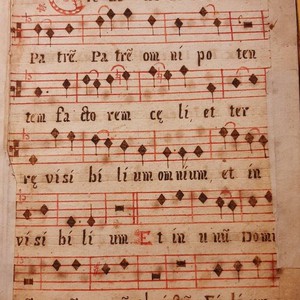 Patrẽ. Patrẽ om ni po ten
tem fa cto rem cę li, et ter
rę vi si bi li um om nium, et in
vi si bi li um Et in unũ. Domi